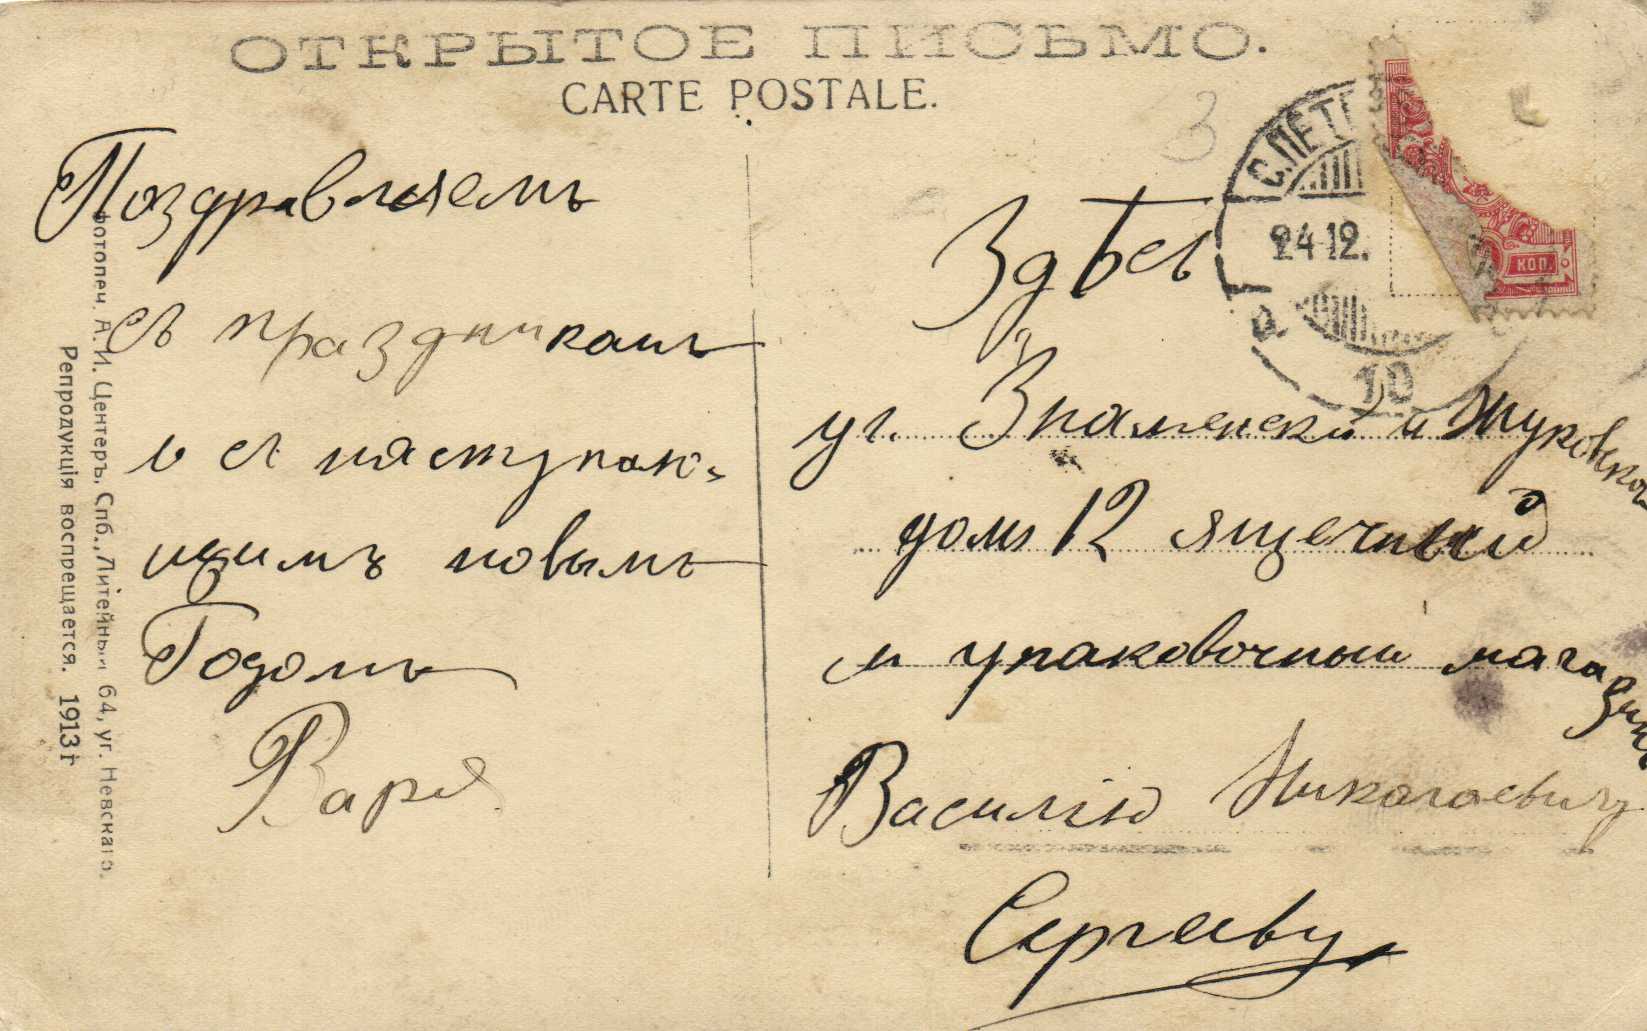 ОТКРЫТОЕ ПИСЬМО.
CARTE POSTALE.
3
С.ПЕТЕ
24 12.
10
КОП.
Поздравляемъ
съ праздникамъ
и съ наступаю-
щимъ новымъ
Годомъ
Варя
Здѣсь
уг. Знаменской и Жуковской
домъ 12 ящечный
и упаковочный магазинъ
Василію Николаевичу
Сергѣеву
Фотопеч. А. И. Центеръ, Спб., Литейный 64, уг. Невскаго.
Репродукція воспрещается. 1913 г